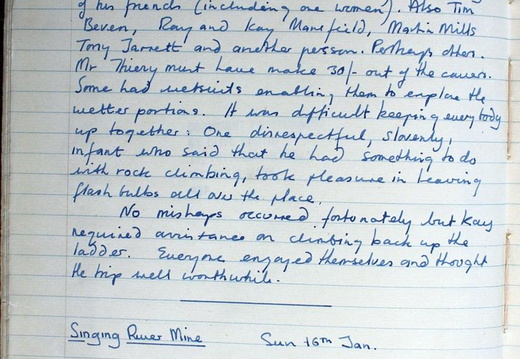 of his friends (including one woman). Also Tim
Beven, Ray and Kay Mansfield, Martin Mills
Tony Jarratt and another person. Perhaps others.
Mr Thiery must have make 30/- out of the cavers.
Some had wetsuits enabling them to explore the
wetter portions. It was difficult keeping everybody
up together: One disrespectful, slovenly,
infant who said that he had something to do
with rock climbing, took pleasure in leaving
flash bulbs all over the place.
No mishaps occurred fortunately but Kay
required assistance on climbing back up the
ladder. Everyone engaged themselves and thought
the trip well worthwhile.
Singing River Mine Sun 16th Jan.